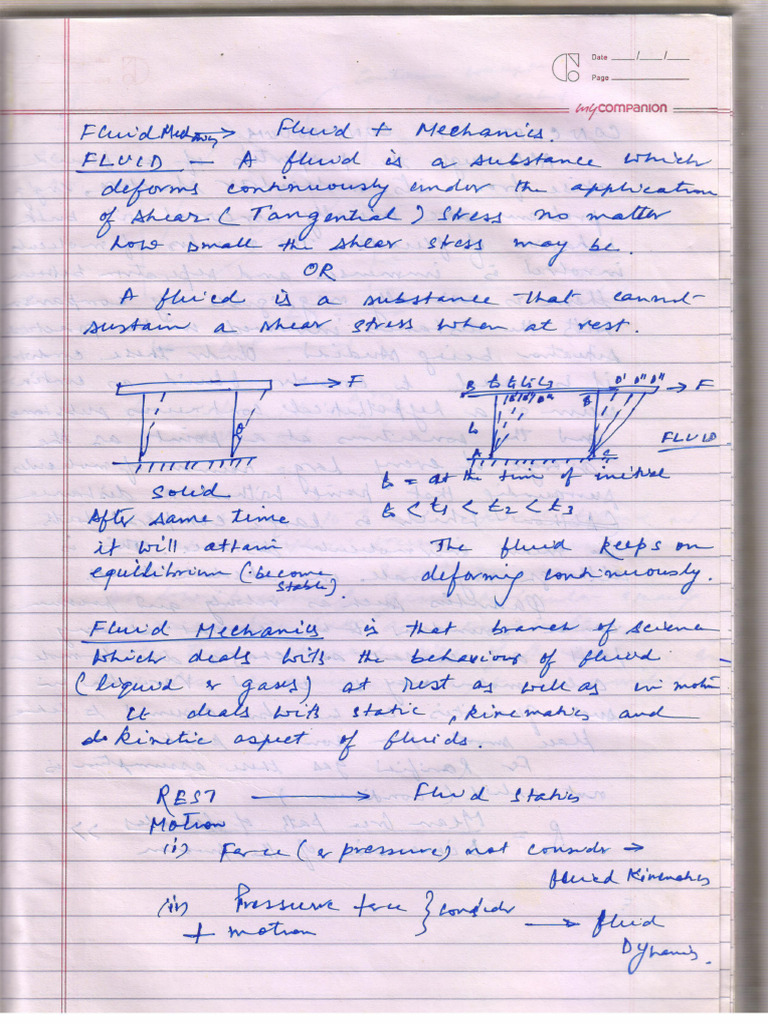 Date ___/___/___
Page
mycompanion
Fluid Mechanics → Fluid + Mechanics.
FLUID – A fluid is a substance which
deforms continuously under the application
of shear (Tangential) stress no matter
how small the shear stress may be.
OR
A fluid is a substance that cannot
sustain a shear stress when at rest.
→ F
θ
Solid
After same time
it will attain
equilibrium (become
stable).
B t₀ t₁ t₂ t₃ D' D'' D''' → F
L
A C
FLUID
t₀ = at the time of initial
t₀ < t₁ < t₂ < t₃
The fluid keeps on
deforming continuously.
Fluid Mechanics is that branch of science
which deals with the behaviour of fluid
(liquid or gases) at rest as well as in motion
It deals with static, kinematics and
kinetic aspect of fluids.
REST → Fluid Statics
Motion
(i) Force (or pressure) not consider →
fluid Kinematics
(ii) Pressure force } consider
+ motion → fluid
Dynamics.